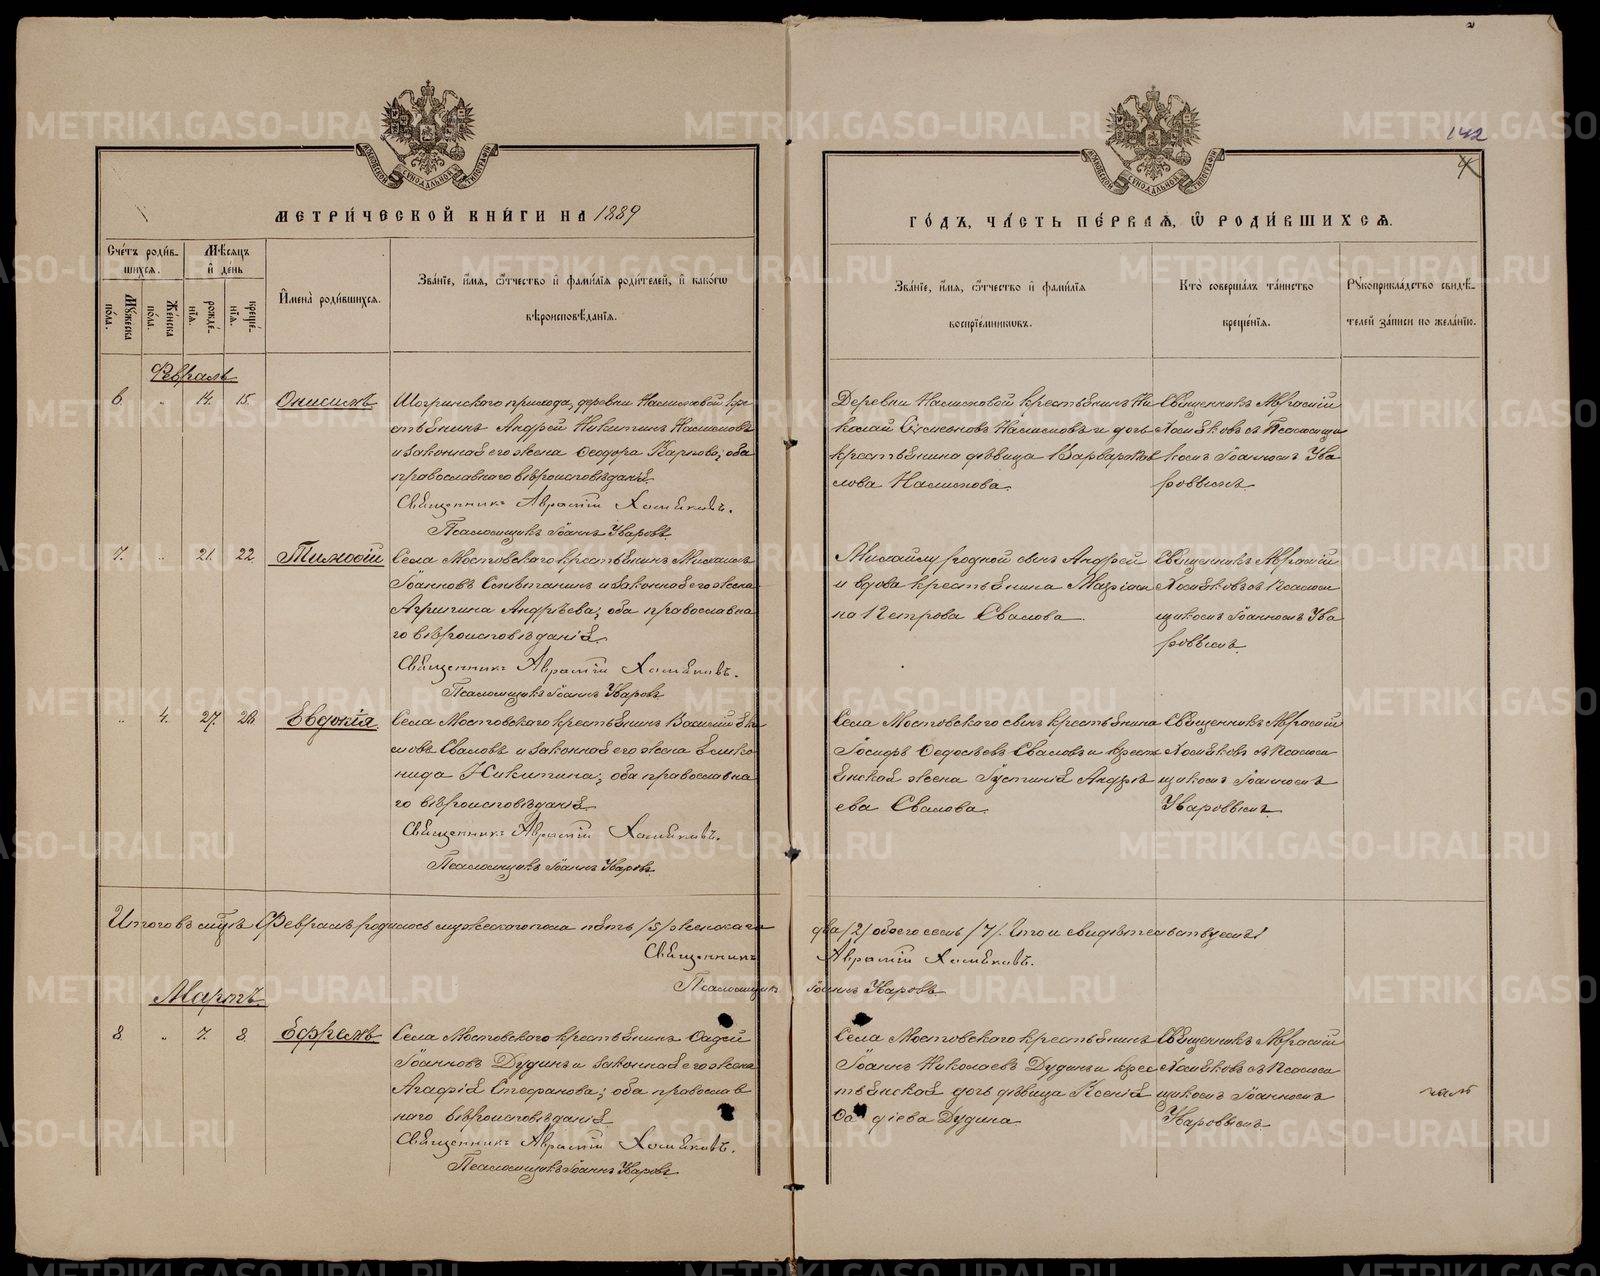 142
4
МЕТРИ́ЧЕСКОЙ КНИ́ГИ НА 1889
ГО́ДЪ, ЧА́СТЬ ПЕ́РВАЯ, Ѡ РОДИ́ВШИХСЯ.
Счéтъ роди́в-
шихся.
Мѣсяцъ
и҆ де́нь
Мꙋ́жеска
по́ла.
Же́нска
по́ла.
рожде́-
нїя.
креще́-
нїя.
И҆мена̀ роди́вшихся.
Зва́нїе, и҆́мя, ѻ҆́тчество и҆ фами́лїя роди́телей, и҆ како́гѡ
вѣроисповѣ́данїя.
Зва́нїе, и҆́мя, ѻ҆́тчество и҆ фами́лїя
воспрїе́мникѡвъ.
Кто̀ соверша́лъ та́инство
креще́нїя.
Рꙋкоприкла́дство свидѣ́-
телей за́писи по жела́нїю.
Февраль
6. „ 14. 15. Онисимъ
Шогринскаго прихода, деревни Налимовой кре-
стьянинъ Андрей Никитинъ Налимовъ
и законная его жена Ѳеодора Карпова; оба
православнаго вѣроисповѣданія.
Священникъ Аврамій Хомяковъ.
Псаломщикъ Іоаннъ Уваровъ
Деревни Налимовой крестьянинъ Ни
колай Симеоновъ Налимовъ и дочь
крестьянина дѣвица Варвара
лова Налимова.
Священникъ Аврамій
Хомяковъ съ Псаломщи
комъ Іоанномъ Ува
ровымъ.
7. „ 21. 22. Тимоѳій
Села Мостовскаго крестьянинъ Михаилъ
Іоанновъ и законная его жена
Агрипина Андрѣева; оба православна
го вѣроисповѣданія.
Священникъ Аврамій Хомяковъ.
Псаломщикъ Іоаннъ Уваровъ
Михаилу родной сынъ Андрей
и вдова крестьянина Маріам
на Петрова Свалова.
Священникъ Аврамій
Хомяковъ съ Псалом
щикомъ Іоанномъ Ува
ровымъ.
„ 4. 27. 28. Евдокія
Села Мостовскаго крестьянинъ Василій Яки
мовъ Сваловъ и законная его жена Еллико
нида Никитина; оба православна
го вѣроисповѣданія.
Священникъ Аврамій Хомяковъ.
Псаломщикъ Іоаннъ Уваровъ.
Села Мостовскаго сынъ крестьянина
Іосифъ Ѳедосѣевъ Сваловъ и крест
ьянская жена Густинія Андрѣ
ева Свалова.
Священникъ Аврамій
Хомяковъ съ Псалом
щикомъ Іоанномъ
Уваровымъ.
Итого въ мцѣ Февралѣ родилось мужескаго пола пять /5/ женскаго
два /2/ обоего семь /7/. Въ томъ свидѣтельствуемъ:
Священникъ Аврамій Хомяковъ.
Псаломщикъ Іоаннъ Уваровъ
Мартъ
8. „ 7. 8. Ефремъ
Села Мостовскаго крестьянинъ Ѳадей
Іоанновъ Дудинъ и законная его жена
Агафія Стефанова; оба православ
наго вѣроисповѣданія.
Священникъ Аврамій Хомяковъ.
Псаломщикъ Іоаннъ Уваровъ.
Села Мостовскаго крестьянинъ
Іоаннъ Николаевъ Дудинъ и крес
тьянская дочь дѣвица Ксенія
Ѳаддіева Дудина
Священникъ Аврамій
Хомяковъ съ Псалом
щикомъ Іоанномъ
Уваровымъ.